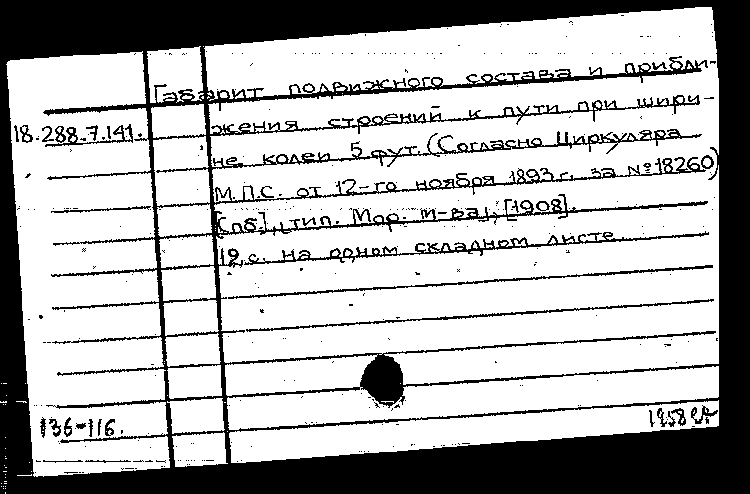 Габарит подвижного состава и прибли-
18.288.7.141. жения строений к пути при шири-
не колеи 5 фут. (Согласно Циркуляра
М.П.С. от 12-го ноября 1893 г. за №18260)
[Спб], тип. Мор. м-ва, [1908].
12 с. на одном складном листе.
136-116.
1958